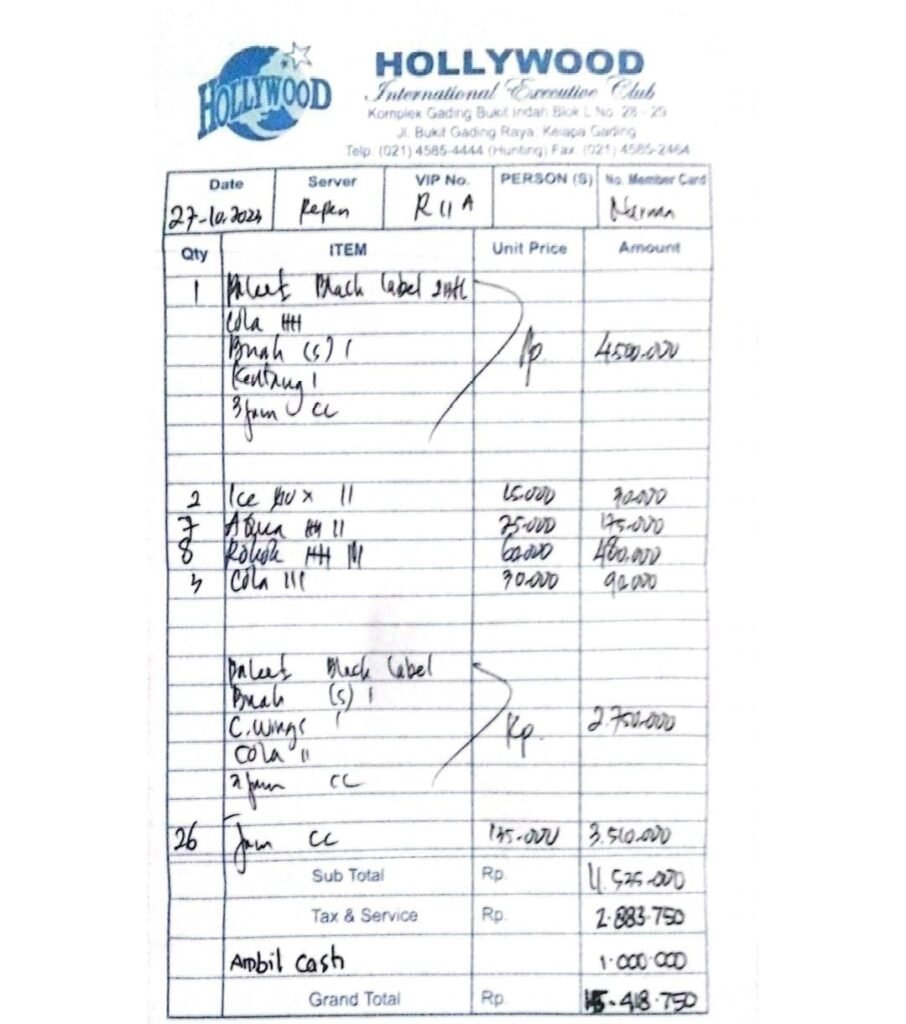 HOLLYWOOD
HOLLYWOOD
International Executive Club
Komplex Gading Bukit Indah Blok L No. 28 - 29
Jl. Bukit Gading Raya, Kelapa Gading
Telp. (021) 4585-4444 (Hunting) Fax. (021) 4585-2464
Date Server VIP No. PERSON (S) No. Member Card
27-10.2023 Pepen R 11 A
Qty ITEM Unit Price Amount
1 Paket Black label 2btl
Cola
Buah (s) 1 Rp 4.500.000
Kentang 1
3 jam CC
2 Ice Bux II 15.000 30.000
7 Aqua 25.000 175.000
8 Rokok 60.000 480.000
3 Cola III 30.000 90.000
Paket Black label
Buah (s) 1
C. Wings 1 Rp. 2.750.000
Cola II
2 jam CC
26 Jam CC 135.000 3.510.000
Sub Total Rp. 11.535.000
Tax & Service Rp. 2.883.750
Ambil Cash 1.000.000
Grand Total Rp. 15.418.750